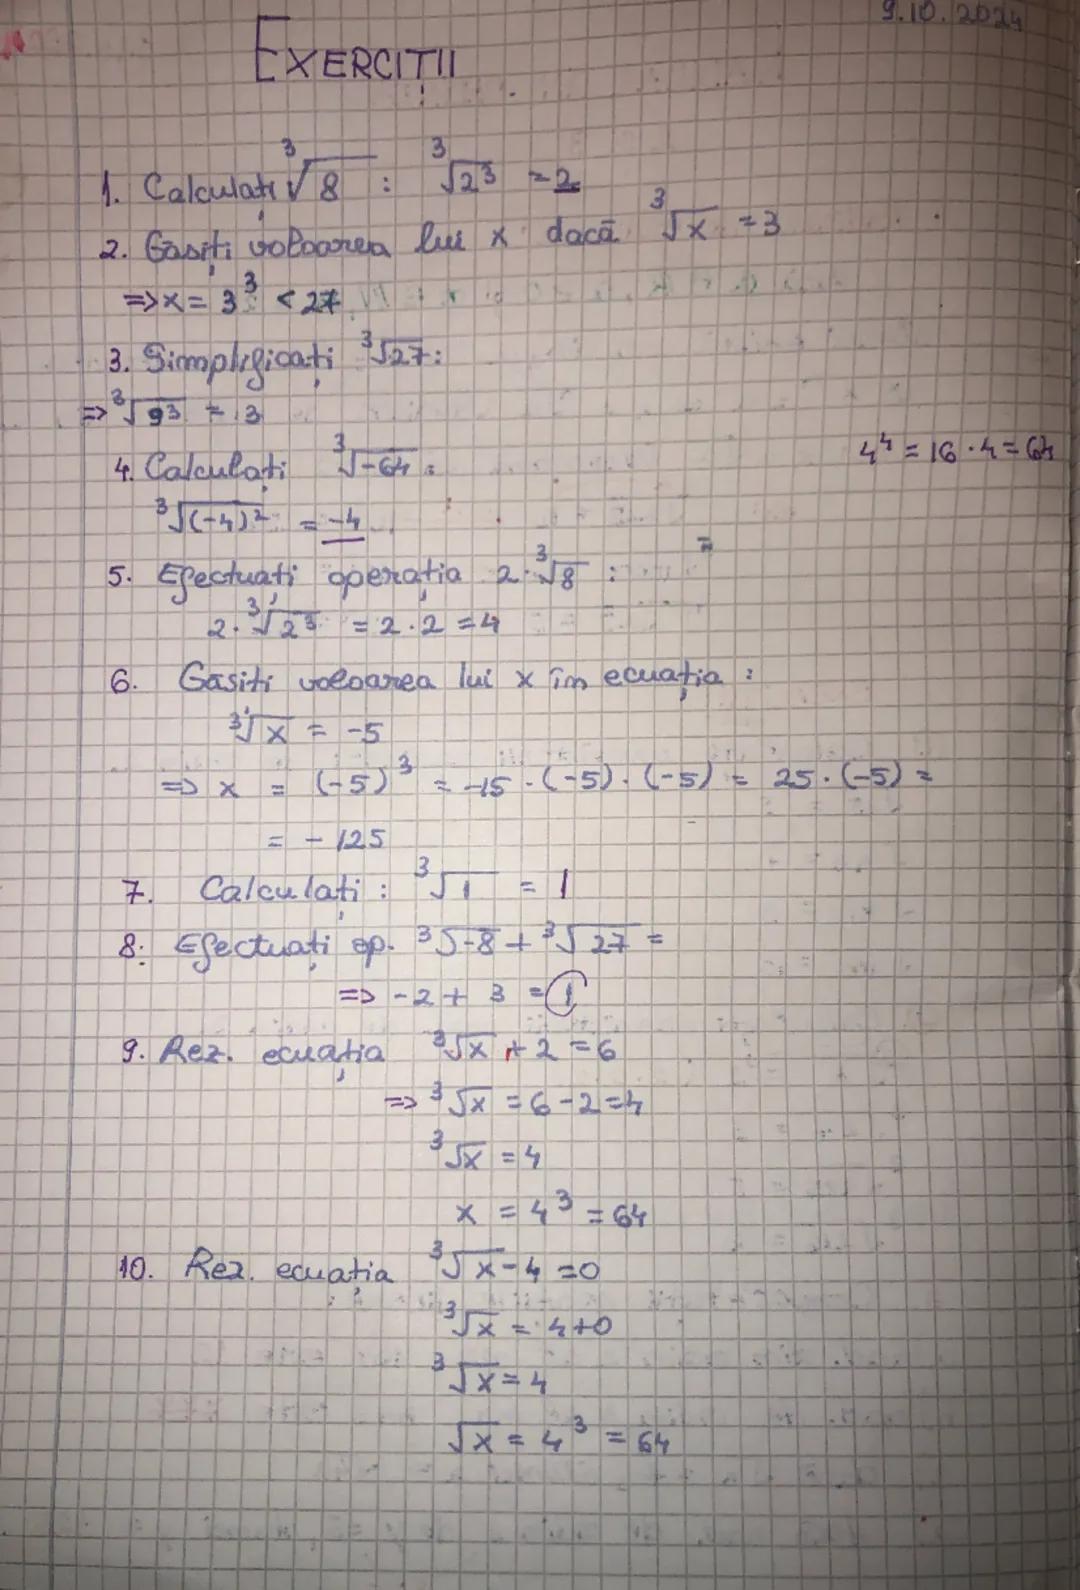 9.10.2024
EXERCIȚII
1. Calculați ∛8 : ∛2³ = 2
2. Găsiți voloarea lui x dacă ∛x = 3
=> x = 3³ < 27
3. Simplificați ∛27:
=> ∛9³ = 3
4. Calculați ∛-64 :
4⁴ = 16 · 4 = 64
∛(-4)² = -4
5. Efectuați operația 2·∛8 :
=
2·∛2³ = 2·2 = 4
6. Găsiți voloarea lui x în ecuația :
∛x = -5
=> x = (-5)³ = -15 · (-5) · (-5) = 25 · (-5) =
= -125
7. Calculați : ∛1 = 1
8: Efectuați op. ∛-8 + ∛27 =
=> -2 + 3 = 1
9. Rez. ecuația ∛x + 2 = 6
=> ∛x = 6 - 2 = 4
∛x = 4
x = 4³ = 64
10. Rez. ecuația ∛x - 4 = 0
∛x = 4+0
∛x = 4
√x = 4³ = 64